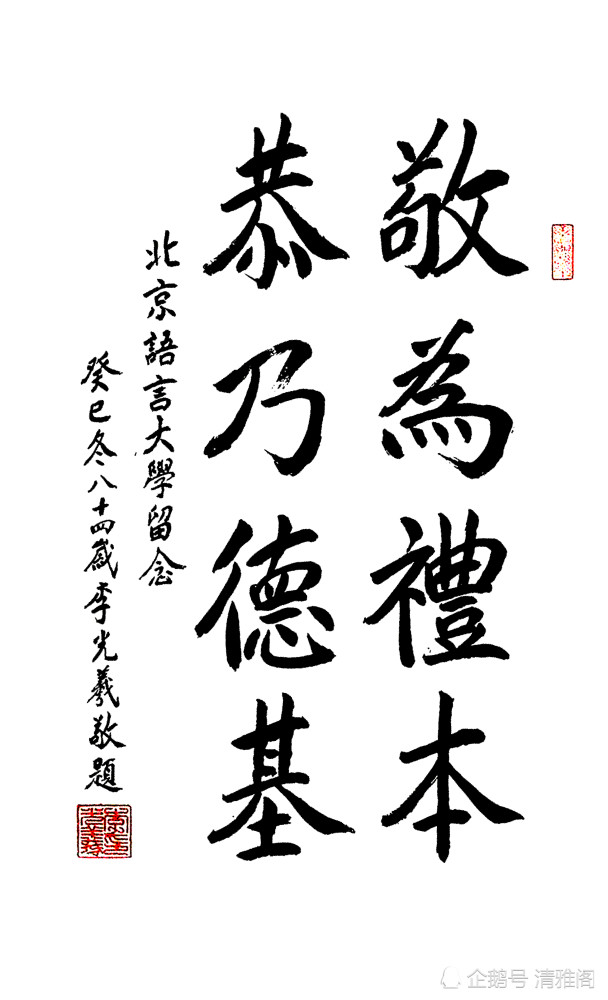 敬為禮本
恭乃德基
北京語言大學留念
癸巳冬八十四歲李光羲敬題
企鹅号 清雅阁